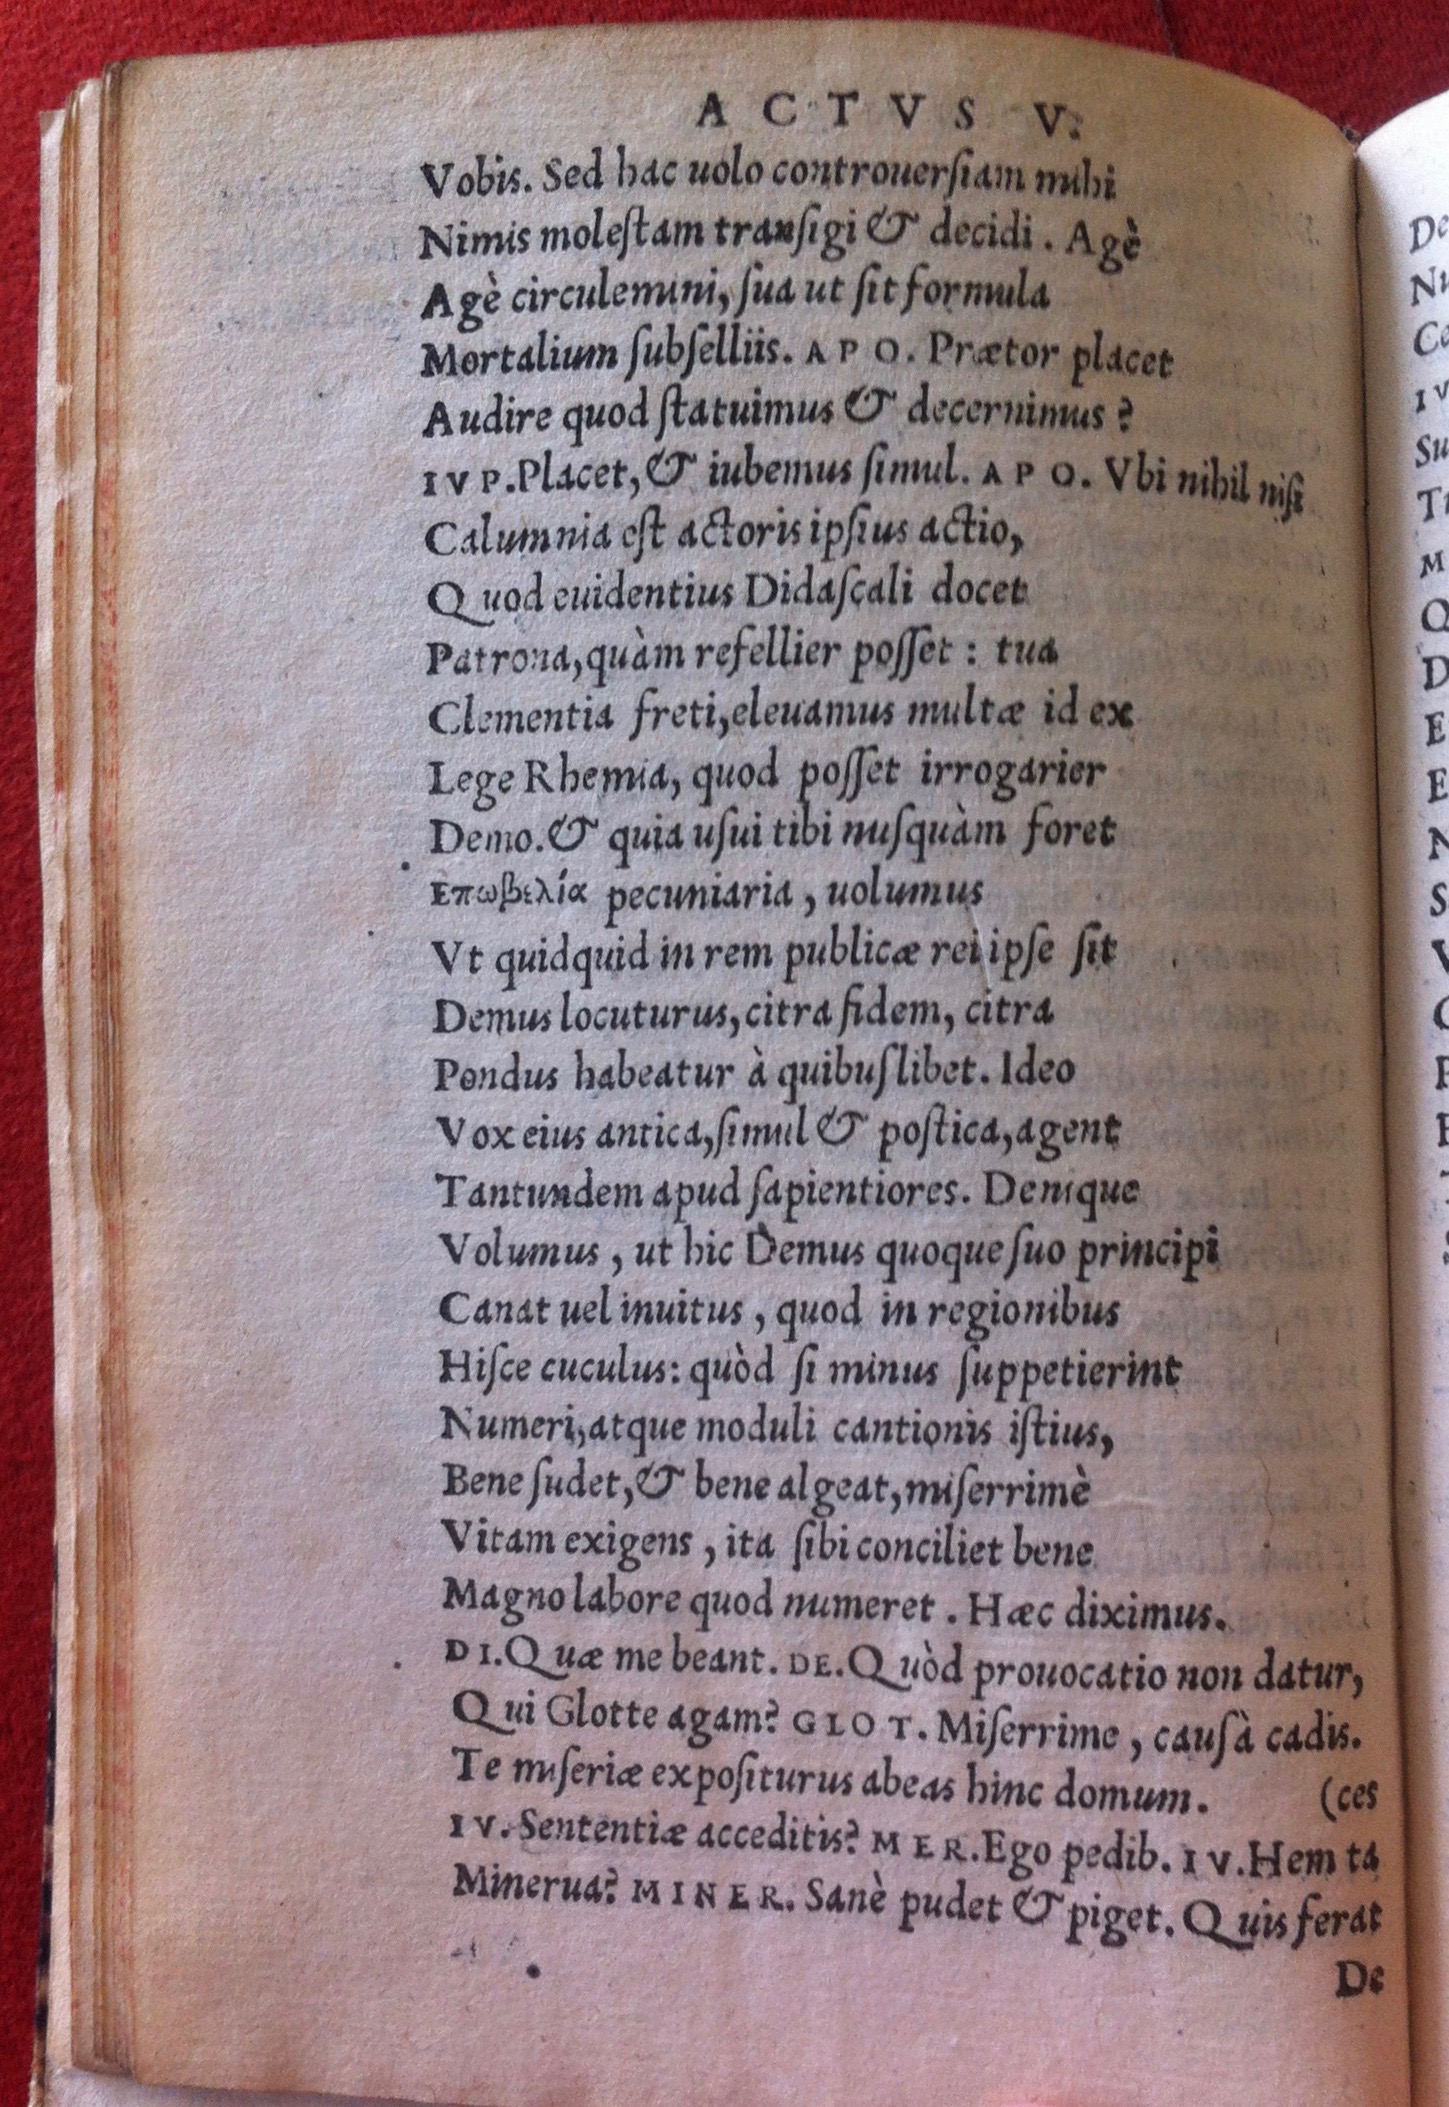 ACTVS V.
Vobis. Sed hac uolo controuerſiam mihi
Nimis moleſtam tranſigi & decidi. Agè
Agè circulemini, ſua ut ſit formula
Mortalium ſubſelliis. APO. Prætor placet
Audire quod ſtatuimus & decernimus?
IVP. Placet, & iubemus ſimul. APO. Vbi nihil niſi
Calumnia eſt actoris ipſius actio,
Quod euidentius Didaſcali docet
Patrona, quàm refellier poſſet: tua
Clementia freti, eleuamus multæ id ex
Lege Rhemia, quod poſſet irrogarier
Demo. & quia uſui tibi nuſquàm foret
Επωβελία pecuniaria, uolumus
Vt quidquid in rem publicæ rei ipſe ſit
Demus locuturus, citra fidem, citra
Pondus habeatur à quibuſlibet. Ideo
Vox eius antica, ſimul & poſtica, agent
Tantundem apud ſapientiores. Denique
Volumus, ut hic Demus quoque ſuo principi
Canat uel inuitus, quod in regionibus
Hiſce cuculus: quòd ſi minus ſuppetierint
Numeri, atque moduli cantionis iſtius,
Bene ſudet, & bene algeat, miſerrimè
Vitam exigens, ita ſibi conciliet bene
Magno labore quod numeret. Hæc diximus.
DI. Quæ me beant. DE. Quòd prouocatio non datur,
Qui Glotte agam? GLOT. Miſerrime, cauſà cadis.
Te miſeriæ expoſiturus abeas hinc domum. (ces
IV. Sententiæ acceditis? MER. Ego pedib. IV. Hem ta
Minerua? MINER. Sanè pudet & piget. Quis ferat
De
De
Nu
IV
Su
M
Q
D
E
E
N
S
V